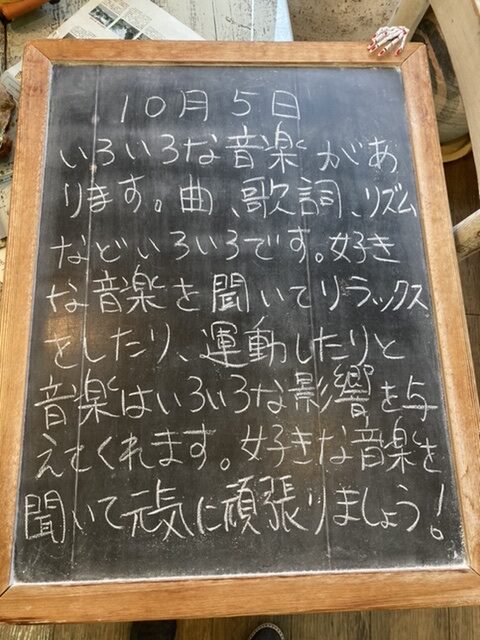 10月5日
いろいろな音楽があ
ります。曲、歌詞、リズム
などいろいろです。好き
な音楽を聞いてリラックス
をしたり、運動したりと
音楽はいろいろな影響を与
えてくれます。好きな音楽を
聞いて元気に頑張りましょう!